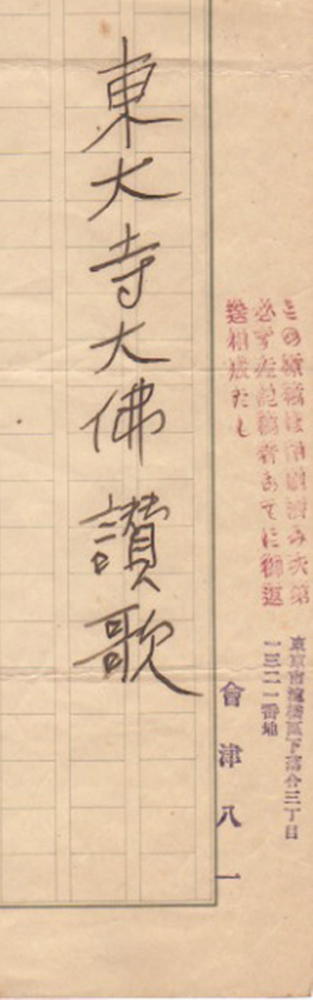 この原稿は印刷済み次第
必ず左記稿者あてに御返
送相成たし
東京市淀橋區下落合三丁目
一三二一番地
會津八一
東大寺大佛讃歌